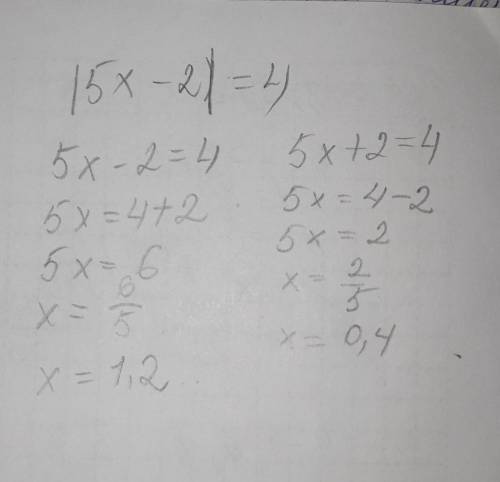 |5x - 2| = 4
5x - 2 = 4
5x = 4 + 2
5x = 6
x = 6/5
x = 1,2
5x + 2 = 4
5x = 4 - 2
5x = 2
x = 2/5
x = 0,4